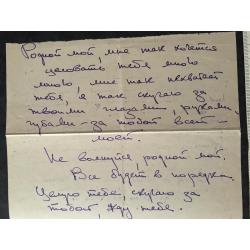 Родной мой, мне так хочется
целовать тебя много
много мне так нехватает
тебя, я так скучаю за
твоими глазами, руками,
губами – за тобой всей –
моей.
Не волнуйся родной мой.
Все будет в порядке.
Целую тебя, скучаю за
тобой, жду тебя.